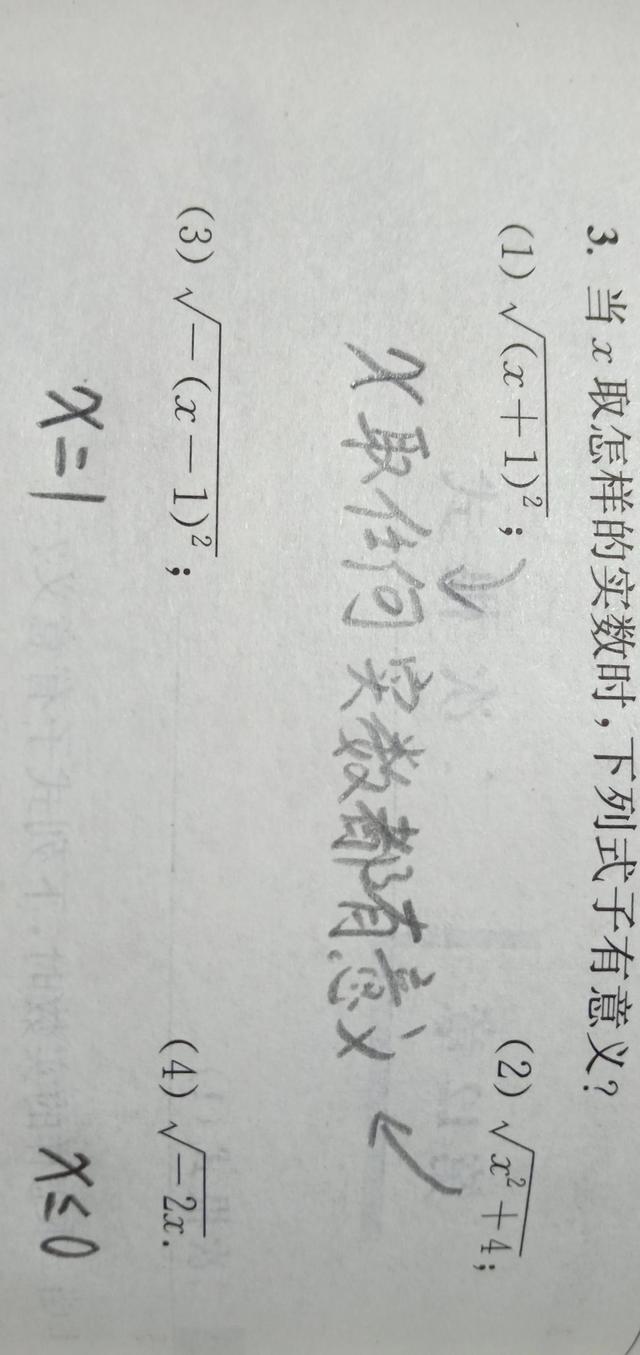 3. 当 x 取怎样的实数时,下列式子有意义?
(1) √(x+1)²; (2) √x²+4;
x取任何实数都有意义
(3) √-(x-1)²; (4) √-2x.
x=1 x≤0